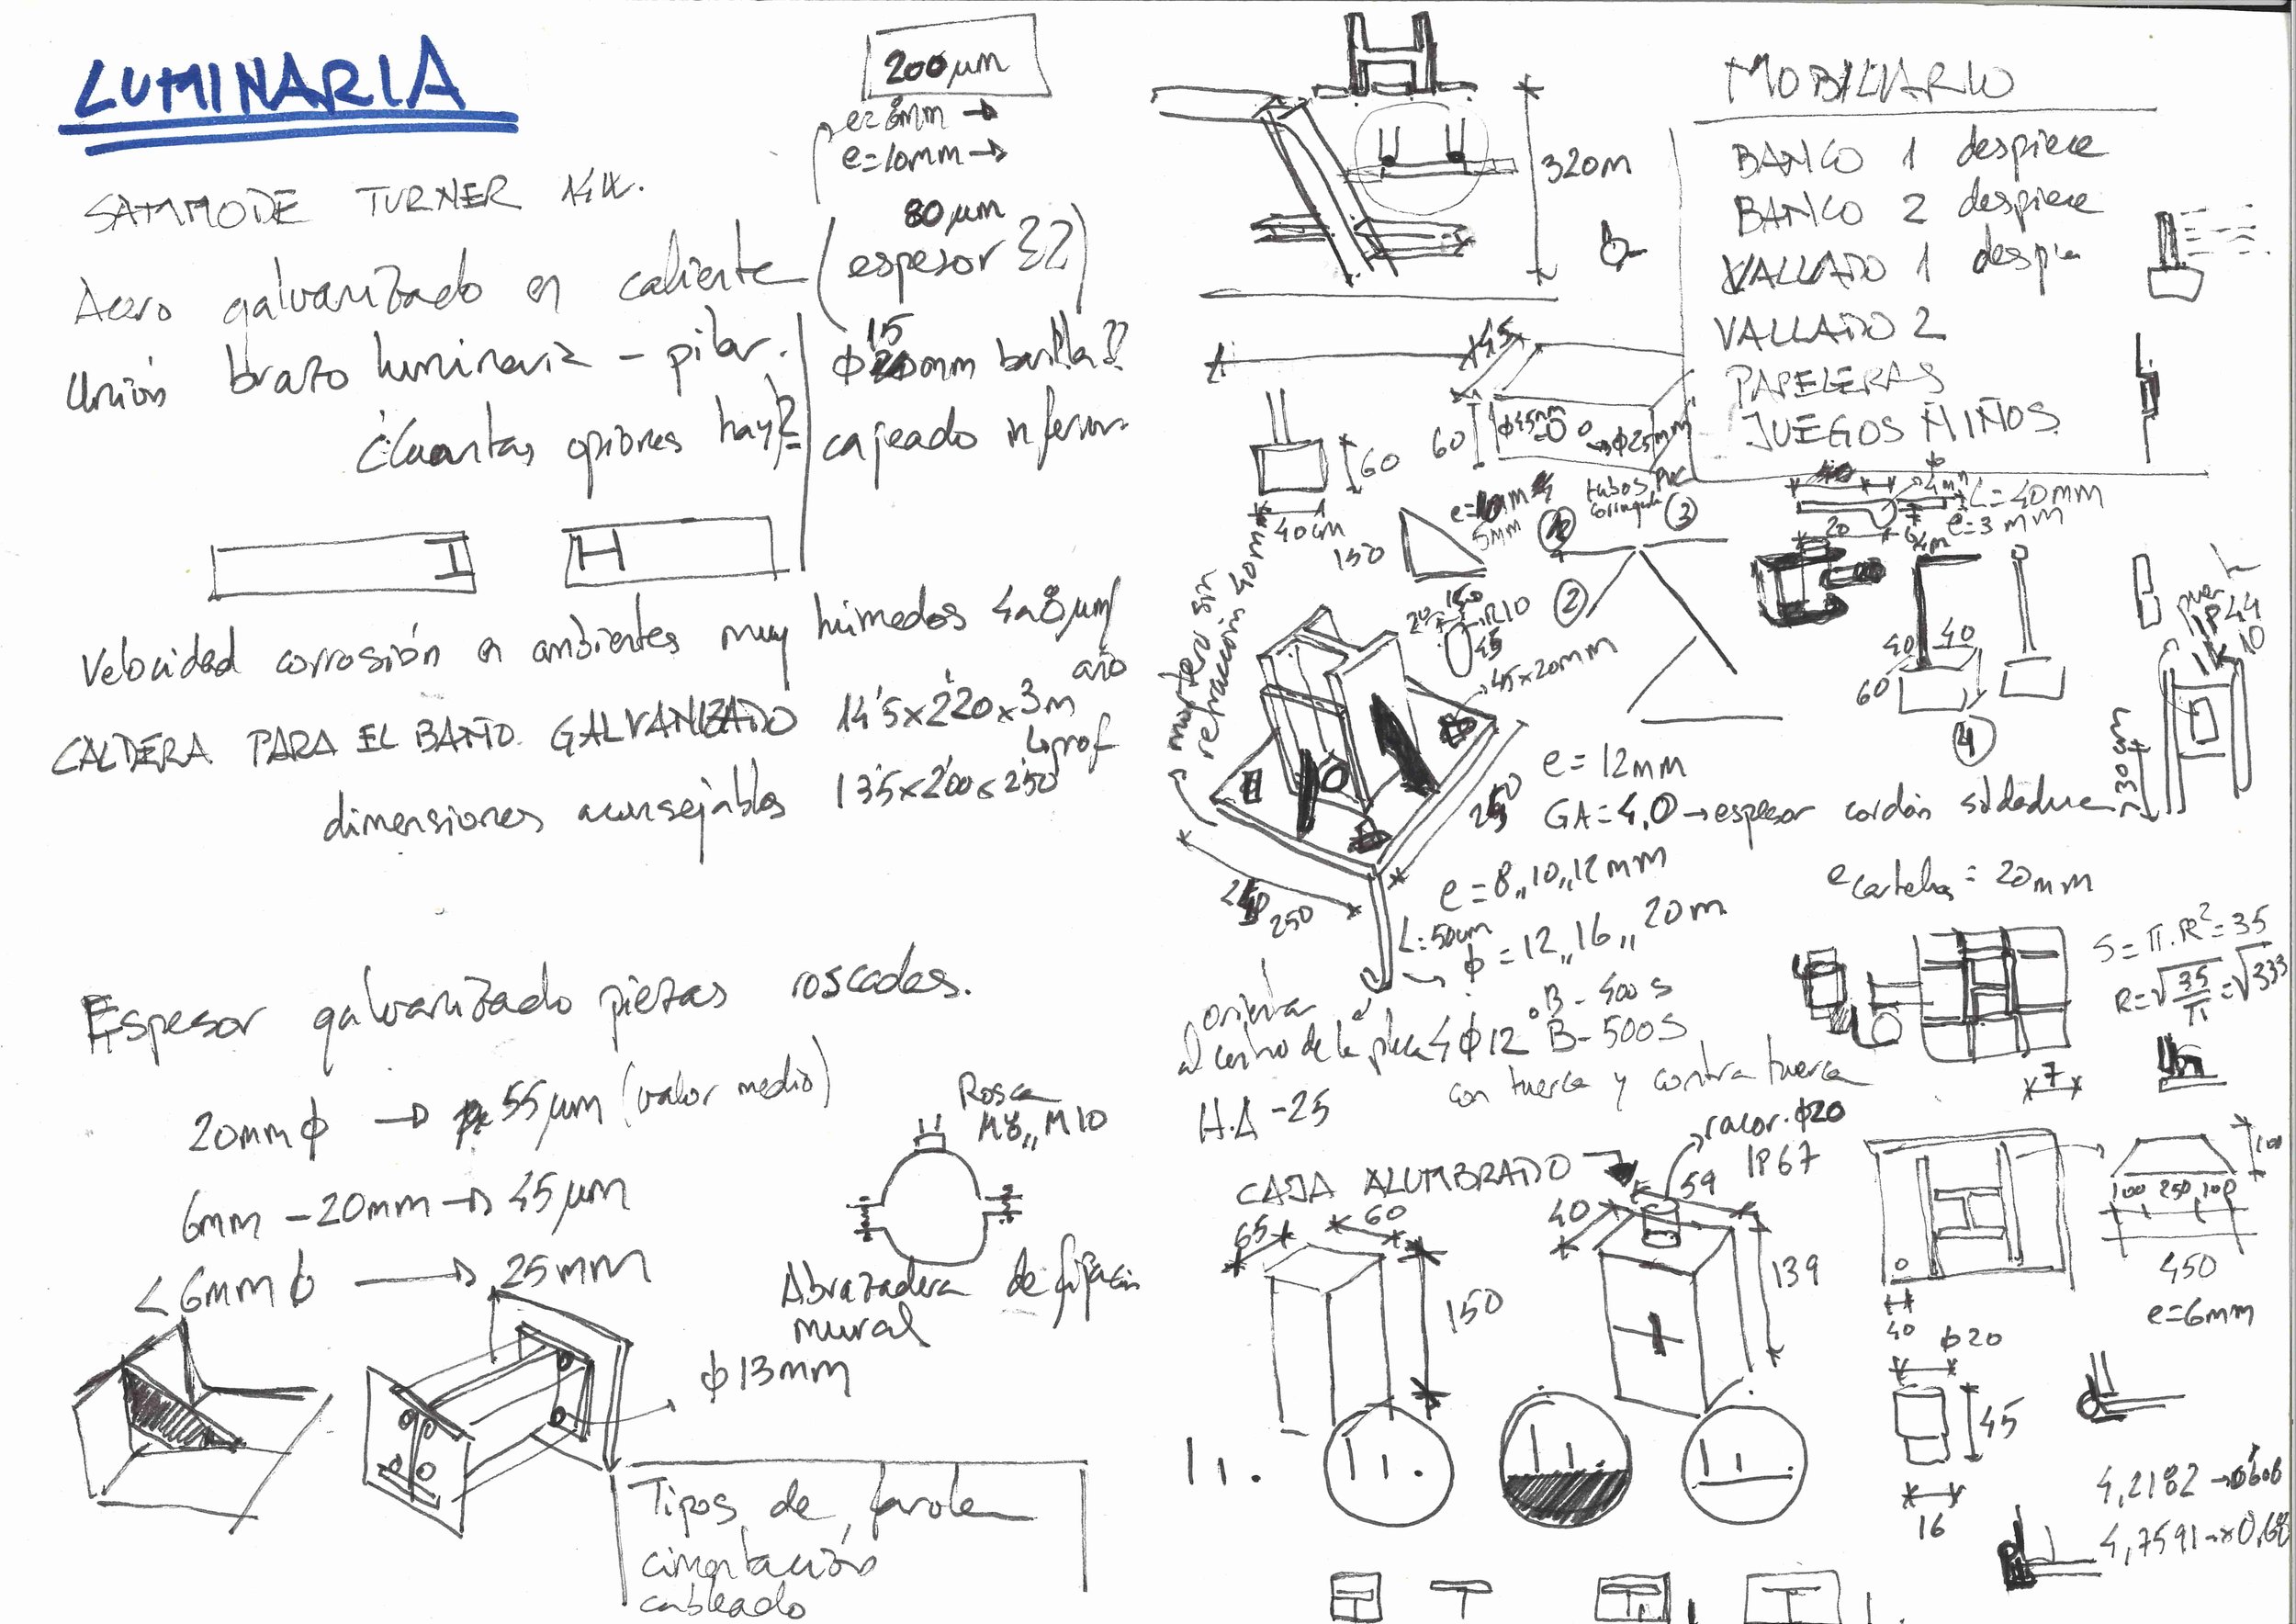 LUMINARIA
200 µm
e=8mm →
e=10mm →
SAMMODE TURNER
80 µm
Acero galvanizado en caliente (espesor ??)
Unión brazo luminaria - pilar.
¿Cuantas opciones hay?
15
mm barilla??
capeado inferior
Velocidad corrosión en ambientes muy húmedos 4a8 µm/
año
CALDERA PARA EL BAÑO GALVANIZADO 14'5x2'20x3m
↳prof
dimensiones aconsejables 13'5x2'00x2'50
Espesor galvanizado piezas roscadas.
20mm ϕ → 55 µm (valor medio)
6mm - 20mm → 45 µm
< 6mm ϕ → 25mm
Rosca
M8,, M10
Abrazadera de fijación
mural
ϕ 13mm
Tipos de farola
cimentación
cableado
320m
MOBILIARIO
BANCO 1 despiece
BANCO 2 despiece
VALLADO 1 despie
VALLADO 2
PAPELERAS
JUEGOS NIÑOS
45
60
60
40cm
ϕ25mm
5mm
tubos PVC
corrugado
3
150
150
2
R10
45
45x20mm
mortero sin
retracción 40mm
L=40mm
e=3mm
20
40
40
60
4
IP44
IK
10
30
e=12mm
GA=4,0 → espesor cordón soldadura
250
250
e=8,,10,,12mm
e cartelas = 20mm
L=50cm
ϕ=12,,16,,20m
B-400S
orientar
al centro de la placa 4ϕ12 B-500S
con tuerca y contratuerca
HA-25
S=π.R²=35
R=√35/π=√333
7
CAJA ALUMBRADO
racor.ϕ20
IP67
65
60
150
40
59
139
100
100 250 100
450
e=6mm
40
ϕ20
45
16
4,2182 → 0'608
4,7591 →